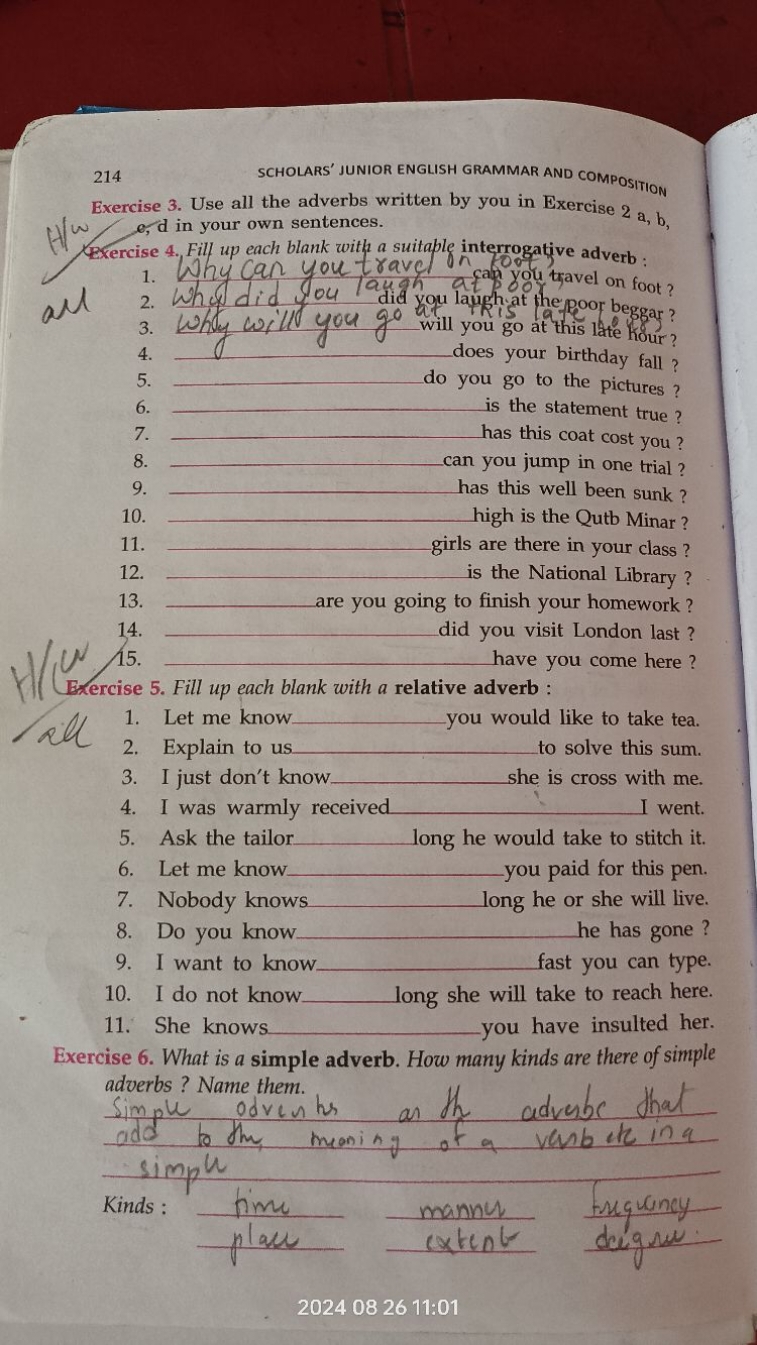 214 SCHOLARS' JUNIOR ENGLISH GRAMMAR AND COMPOSITION
Exercise 3. Use all the adverbs written by you in Exercise 2 a, b,
c, d in your own sentences.
H/W
Exercise 4. Fill up each blank with a suitable interrogative adverb :
all
1. Why can you travel on foot? can you travel on foot ?
2. Why did you laugh at poor did you laugh at the poor beggar ?
3. Why will you go at this late will you go at this late hour ?
4. does your birthday fall ?
5. do you go to the pictures ?
6. is the statement true ?
7. has this coat cost you ?
8. can you jump in one trial ?
9. has this well been sunk ?
10. high is the Qutb Minar ?
11. girls are there in your class ?
12. is the National Library ?
13. are you going to finish your homework ?
14. did you visit London last ?
15. have you come here ?
H/W
Exercise 5. Fill up each blank with a relative adverb :
all
1. Let me know you would like to take tea.
2. Explain to us to solve this sum.
3. I just don't know she is cross with me.
4. I was warmly received I went.
5. Ask the tailor long he would take to stitch it.
6. Let me know you paid for this pen.
7. Nobody knows long he or she will live.
8. Do you know he has gone ?
9. I want to know fast you can type.
10. I do not know long she will take to reach here.
11. She knows you have insulted her.
Exercise 6. What is a simple adverb. How many kinds are there of simple
adverbs ? Name them.
Simple that
add to the meaning of a verb etc in a
simple
Kinds : time manner frequency
place extent degree
2024 08 26 11:01